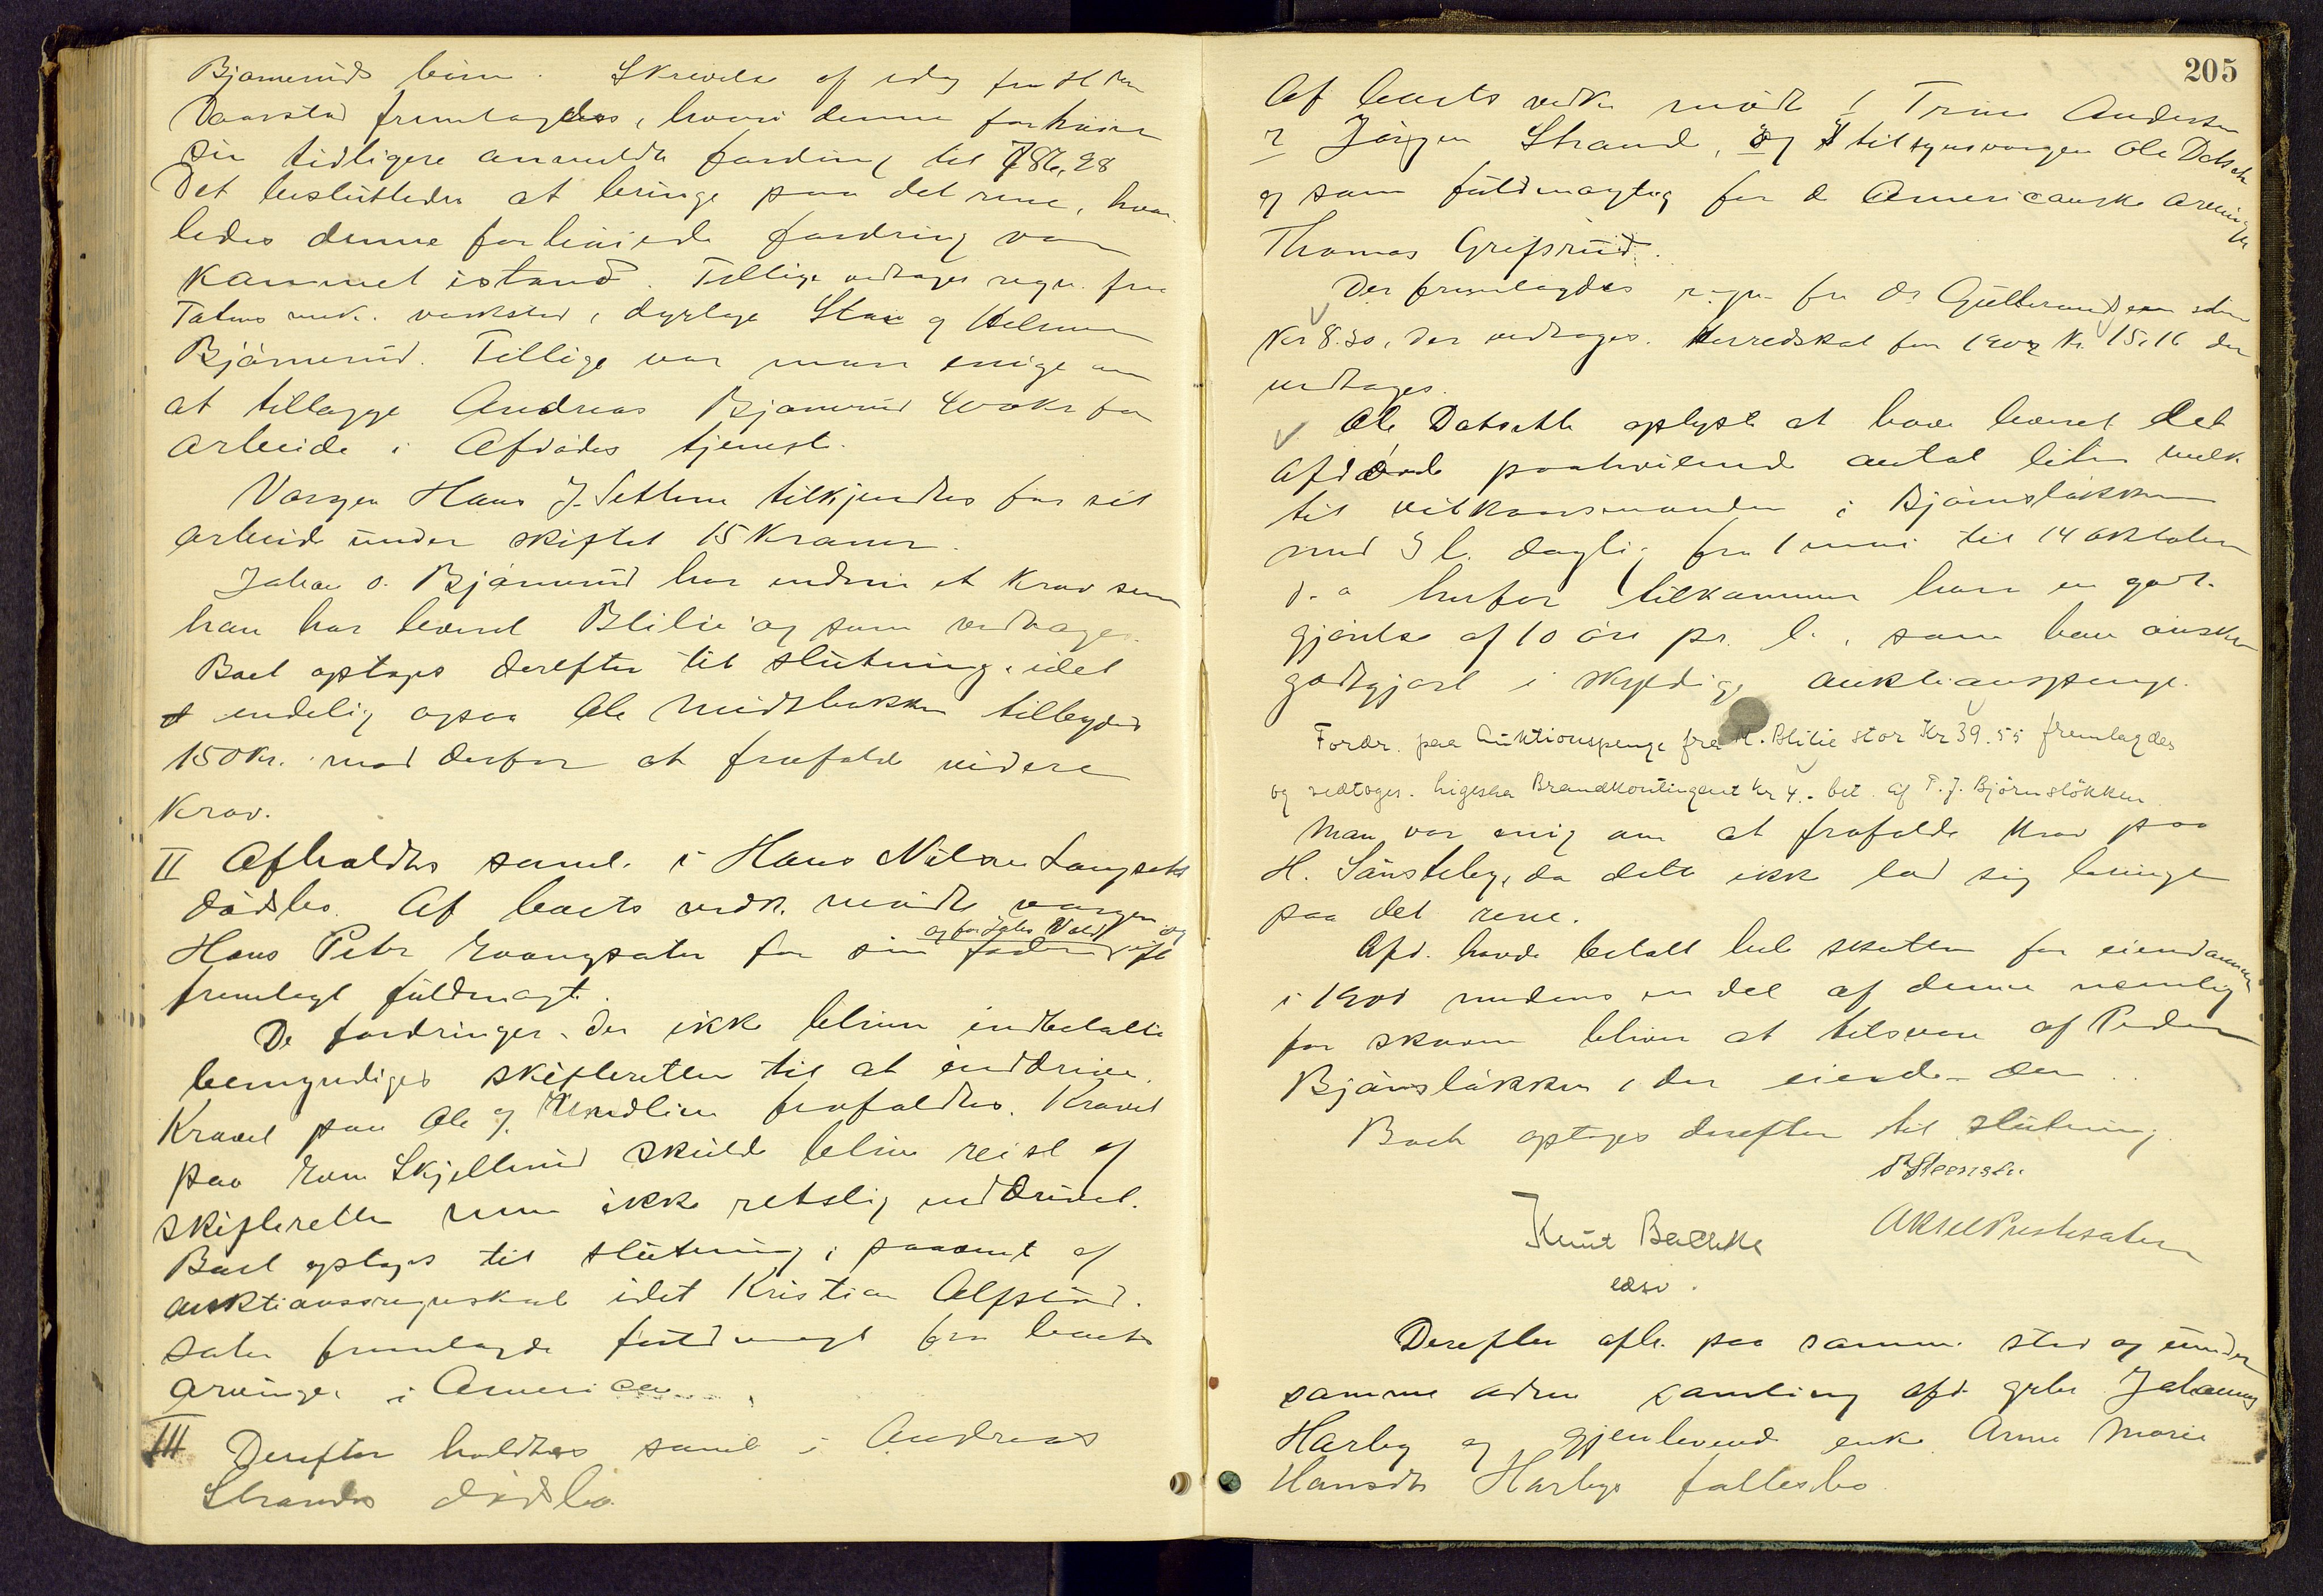 Bjørnerüds Skrivelse af idag fra
Vaarstad fremlagdes, hvori denne forhöier
sin tidligere anmeldte fordring til 786,28
Det besluttedes at bringe paa det rene, hvor-
ledes denne forhöiede fordring var
kommet istand. Tillige vedtages regn. fra
Totens mek. værksted, dyrlæge Stai og Helmer
Björnerüd. Tillige var man enige om
at tillægge Andreas Bjørnerüd 400 kr for
arbeide i Afdödes tjeneste.
Værgen Hans J. Sethne tilkjendtes for sit
arbeide ünder skiftet 15 Kroner.
Johan O. Bjørnerüd har endnu et Krav som
han har leveret Blilie og som vedtages.
Boet optages derefter til slütning, idet
endelig ogsaa Ole tilbydes
150 Kr. mod derfor at frafalde videre
Krav.
II Afholdtes saml. i Hans Nilsen Langsets
dödsbo. Af boets vedk. mödte værgen og
og for Johs Vold
Hans Peter for sin fader ifl
fremlagt füldmagt.
De fordringer, der ikke bliver indbetalte
bemyndiges skifteretten til at inddrive.
Kravet paa Ole J. frafaldtes. Kravet
paa Skjellerüd skülde blive reist af
skifteretten men ikke retslig inddrivet.
Boet optages til slütning, paa af
auktionsregnskab idet Kristian Alfstad-
sæter fremlagde füldmagt fra boets
arvinger i America.
III Derefter holdtes saml i Andreas
Strands dödsbo
205
Af boets vedk. mödte 1 Trine Andersen
2 Jörgen Strand, og tilsynsværgen Ole Dotseth
og som füldmægtig for de Americanske arvinger
Thomas Grefsrüd.
Der fremlagdes regn. fra Dr Gülbrandsen stor
Kr 8.30, der vedtages. Herredskat for 1902 Kr. 15,16 der
vedtages.
Ole Dotseth oplyste at have leveret det
afdöde paahvilende antal liter melk
til vilkaarsmanden i Björnslökken
med 3 l. daglig fra 1 mai til 14 oktober
d. a. herfor tilkommer ham en godt-
gjörelse af 10 öre pr. l., som han önsker
godtgjort i skyldige auktionspenge.
Fordr. paa Auktionspenge fra H. Blilie stor Kr 39.55 fremlagdes
og vedtoges. Ligesaa Brandkontingent kr 4.- bet. af P. J. Björnslökken
Man var enig om at frafalde Krav paa
H. Sönsteby, da dette ikke lod sig bringe
paa det rene.
Afd. havde betalt hele skatten for eiendommen
i 1901 medens en del af denne nemlig
for skoven bliver at tilsvare af Peder
Björnslökken, der eiede den.
Boet optages derefter til slütning.
Knut Bakke
Aksel Prestesæter
Derefter afh. paa samme sted og ünder
samme adm samling i afd. grbr. Johannes
Harby og gjenlevende enke Anne Marie
Hansdtr Harbys fællesbo